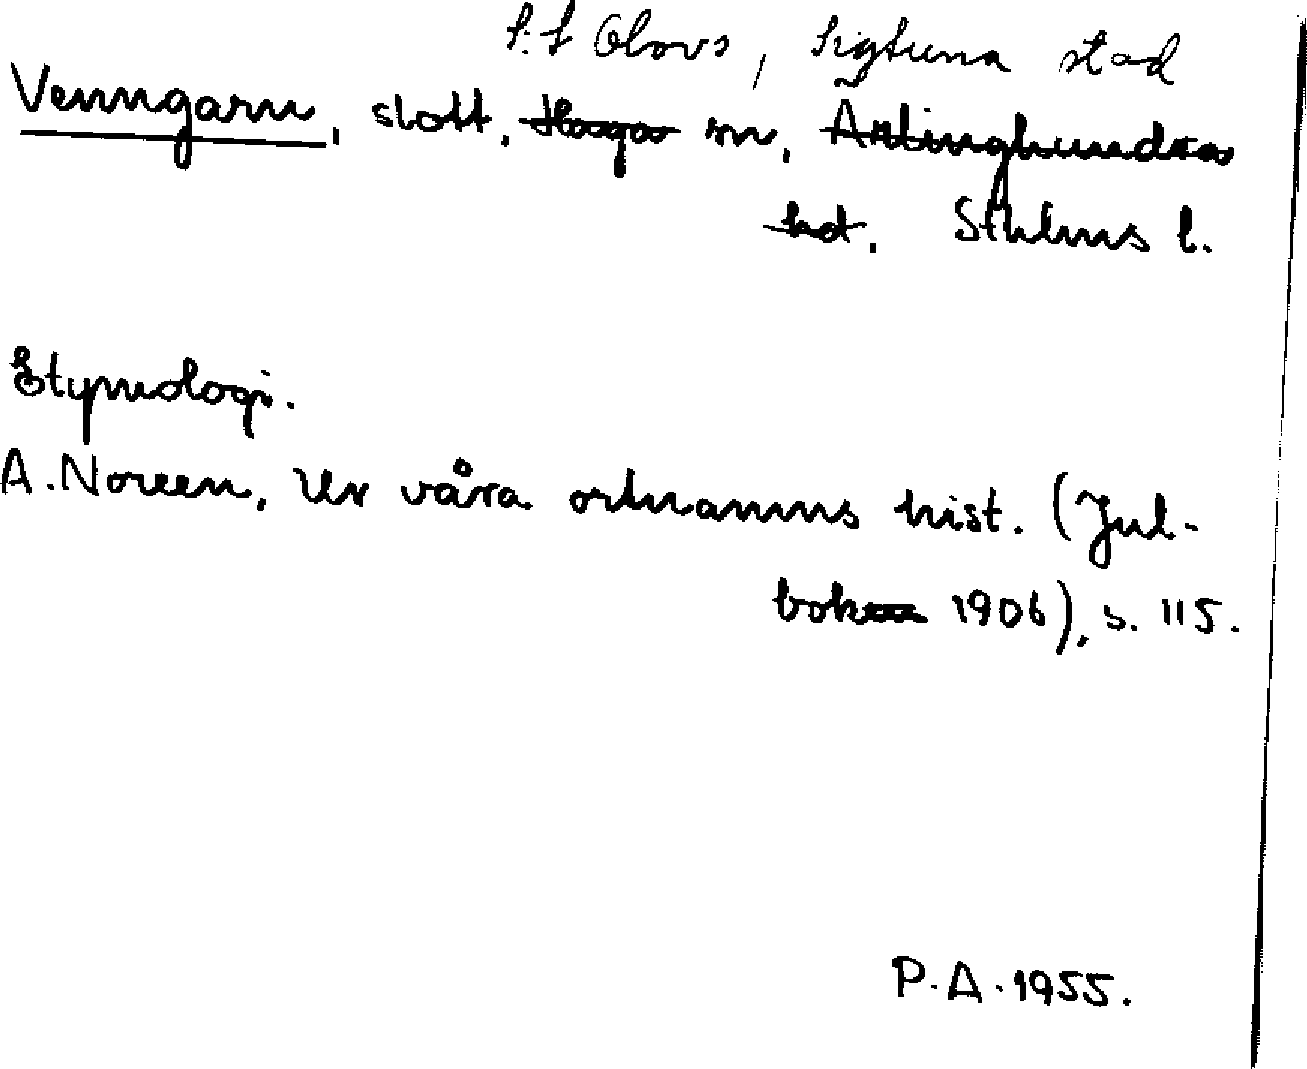 S:t Olovs, Sigtuna stad
Venngarn, slott, Haga sn, Ärlinghundra
hd. Sthlms l.
Etymologi.
A. Noreen, Ur våra ortnamns hist. (Jul-
bok 1906), s. 115.
P. A. 1955.